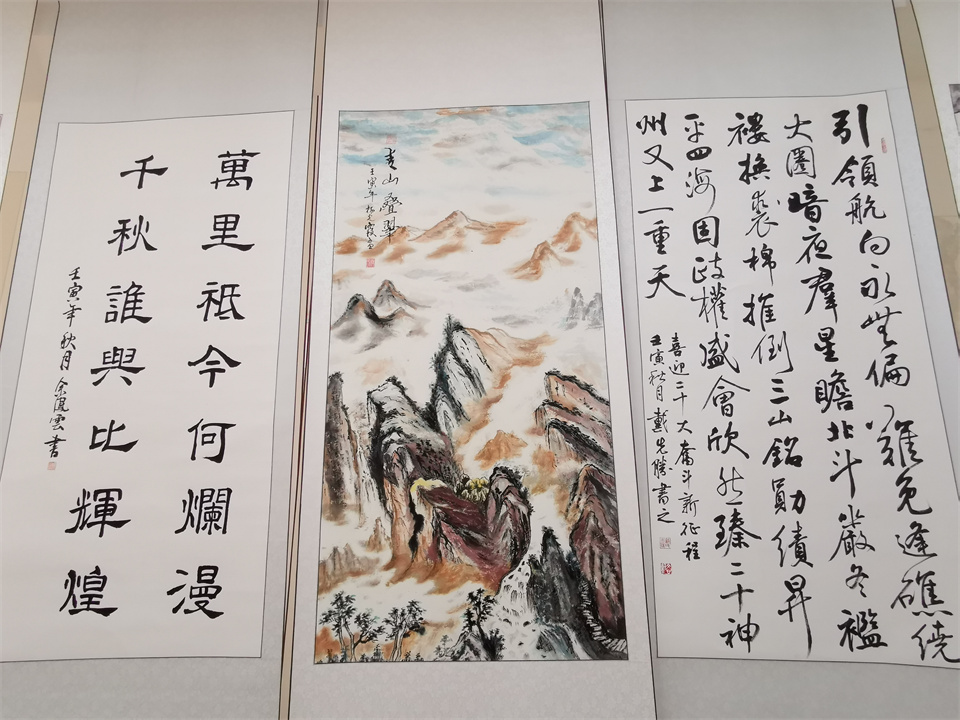 引領航向永無偏難免逢礁繞
大圈暗夜羣星瞻北斗嚴冬襤
褸換裘棉推倒三山銘勛績昇
平四海固政權盛會欣然臻二十神
州又上一重天
喜迎二十大奮斗新征程
壬寅秋月戴先勝書之
青山疊翠
壬寅年
萬里祗今何爛漫
千秋誰與比輝煌
壬寅年秋月余雲書